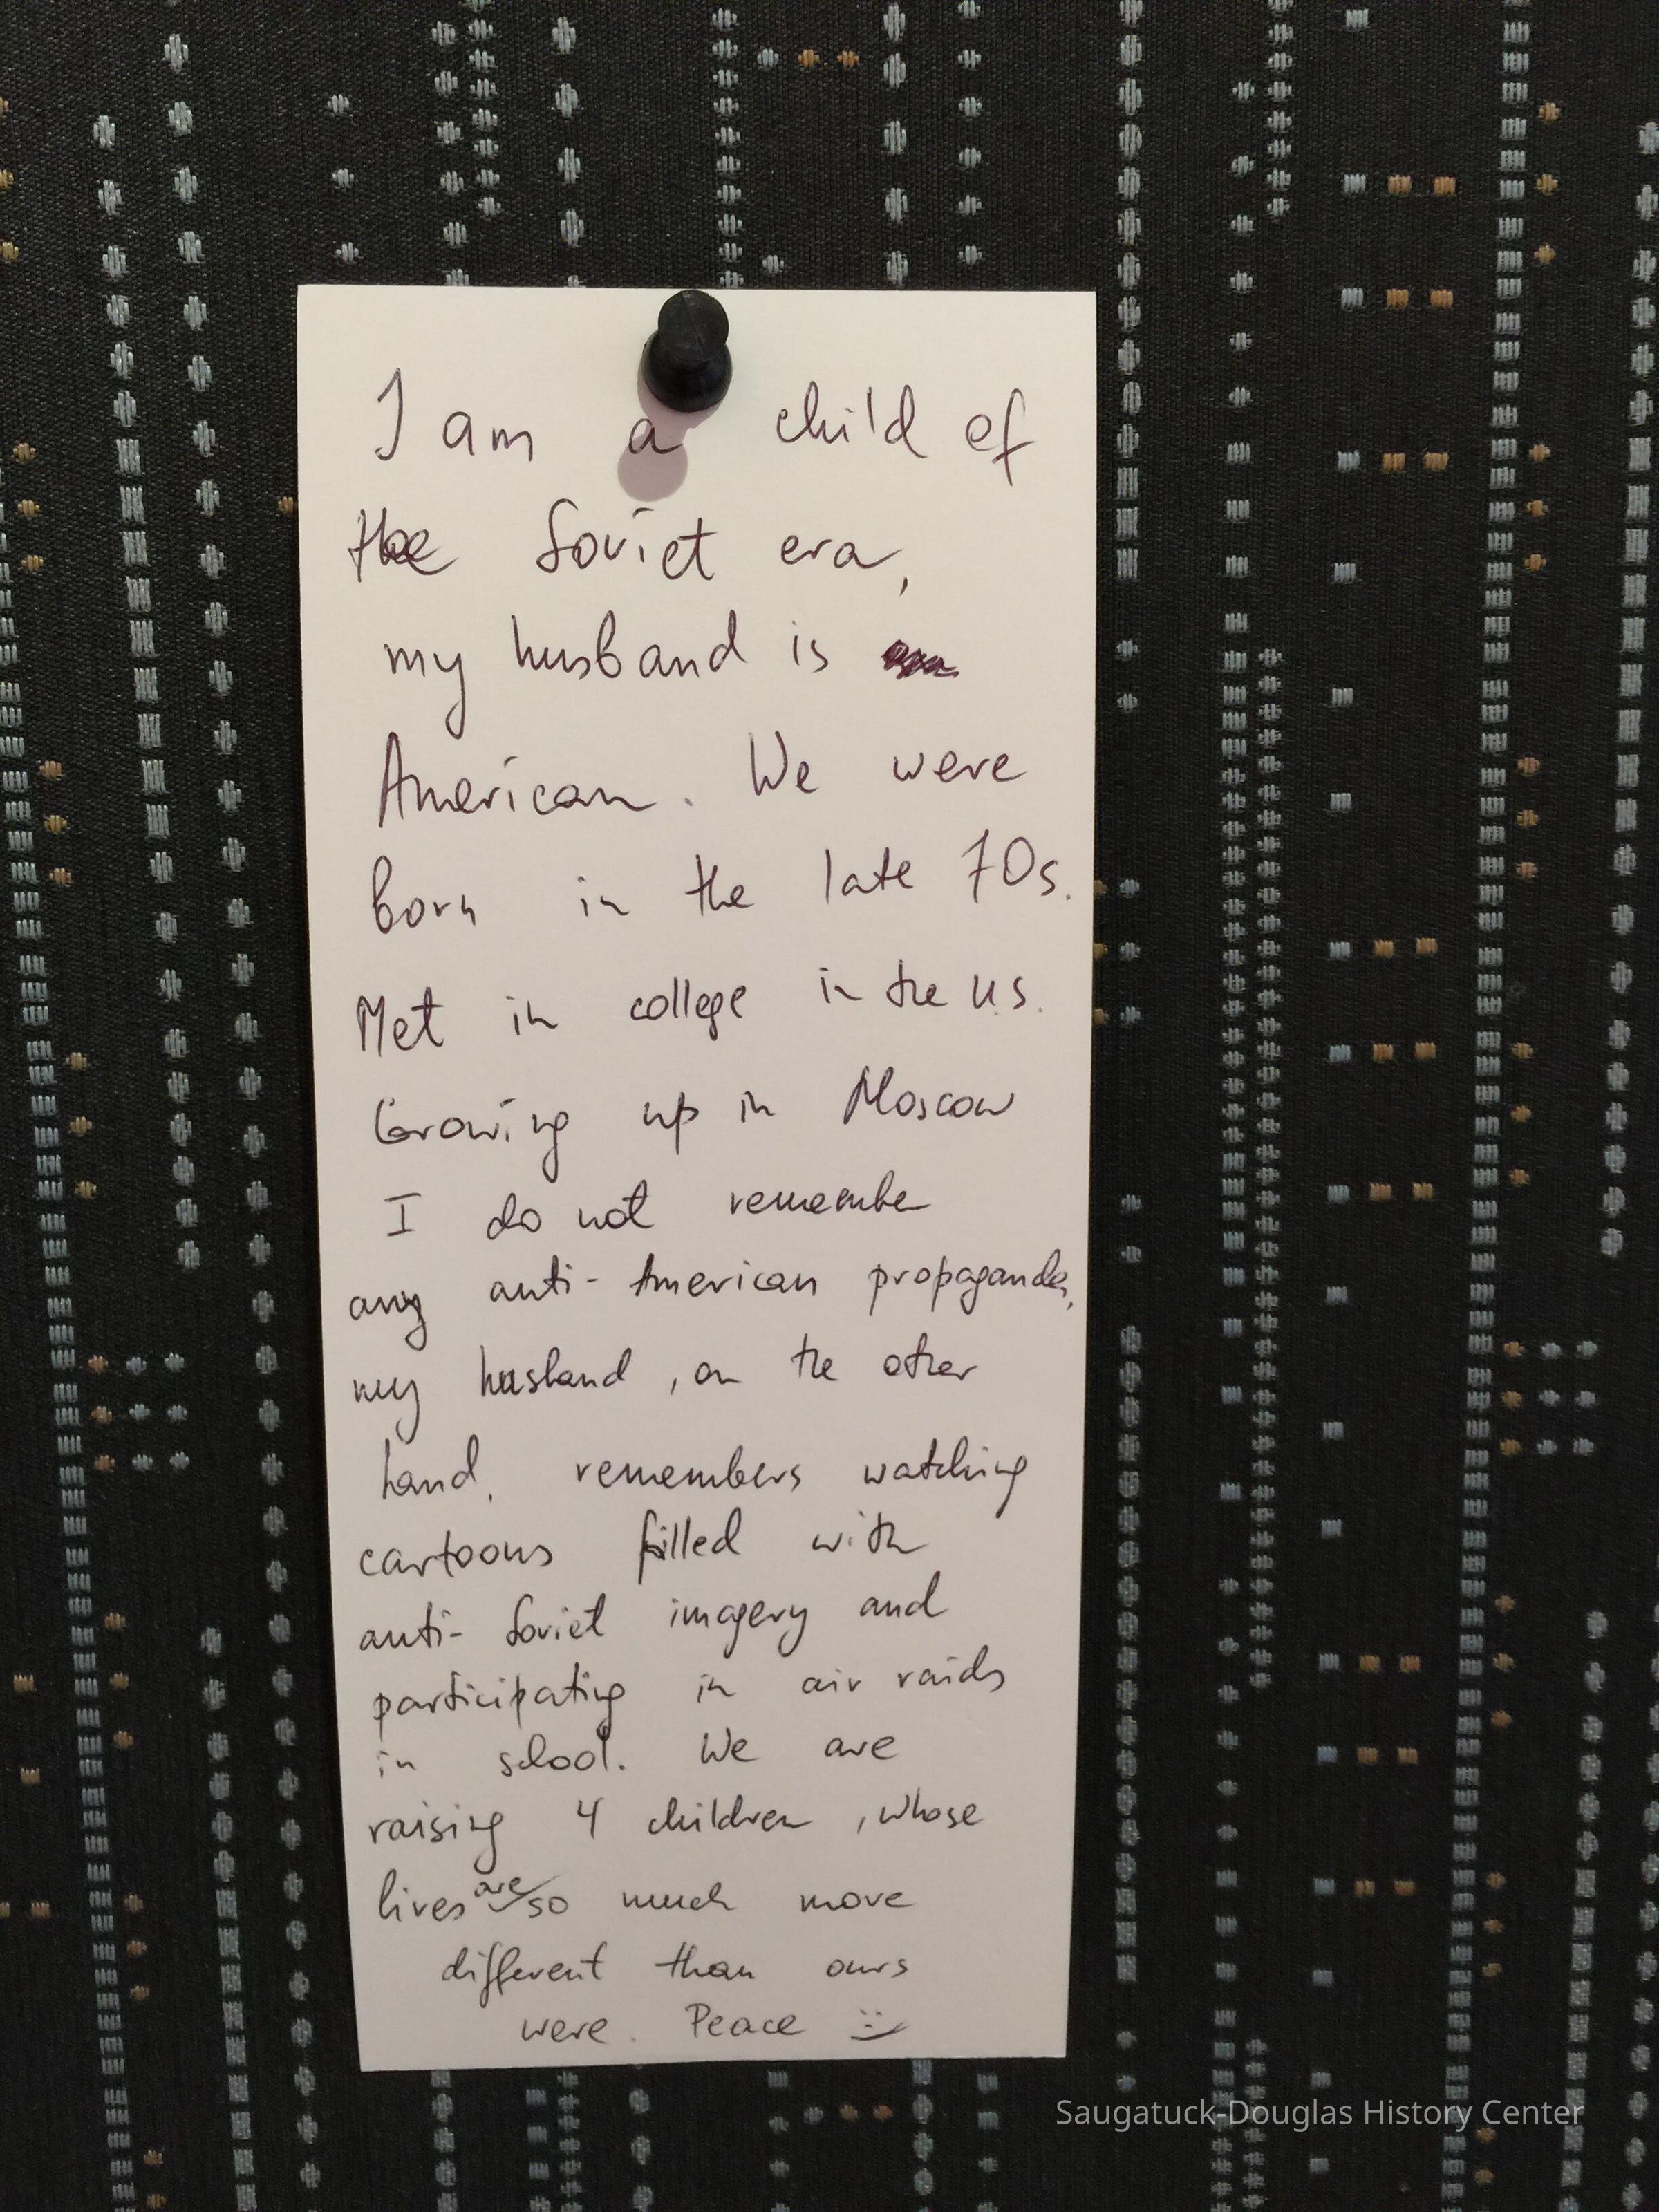 I am a child of
the Soviet era,
my husband is
American. We were
born in the late 70s.
Met in college in the U.S.
Growing up in Moscow
I do not remember
any anti-American propaganda,
my husband, on the other
hand, remembers watching
cartoons filled with
anti-Soviet imagery and
participating in air raids
in school. We are
raising 4 children, whose
lives are so much more
different than ours
were. Peace :)
Saugatuck-Douglas History Center